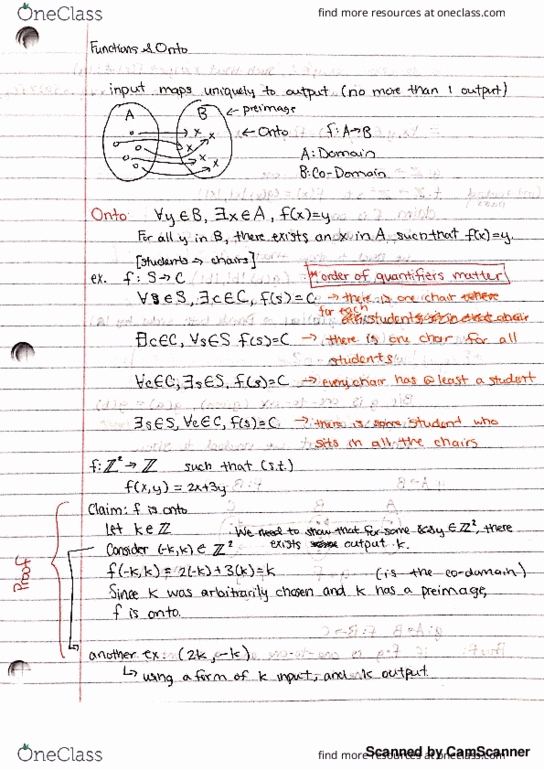 OneClass
find more resources at oneclass.com
Functions & Onto
input maps uniquely to output (no more than 1 output)
A B ← preimage
← Onto f: A→B
A: Domain
B: Co-Domain
Onto: ∀y∈B, ∃x∈A, f(x)=y
For all y in B, there exists an x in A, such that f(x)=y.
[students → chairs]
ex. f: S→C * order of quantifiers matter
∀s∈S, ∃c∈C, f(s)=C → there is one chair
for each student
∃c∈C, ∀s∈S f(s)=C → there is one chair for all
students
∀c∈C, ∃s∈S, f(s)=C → every chair has @ least a student
∃s∈S, ∀c∈C, f(s)=C → there is some student who
sits in all the chairs
f: ℤ² → ℤ such that (s.t.)
f(x,y) = 2x+3y
Proof
Claim: f is onto
Let k∈ℤ We need to show that for some x,y∈ℤ², there
Consider (-k,k)∈ℤ² exists output k.
f(-k,k) = 2(-k)+3(k)=k (is the co-domain)
Since k was arbitrarily chosen and k has a preimage,
f is onto.
another ex: (2k,-k)
↳ using a form of k input, and k output
OneClass
find more resources at oneclass.com
Scanned by CamScanner